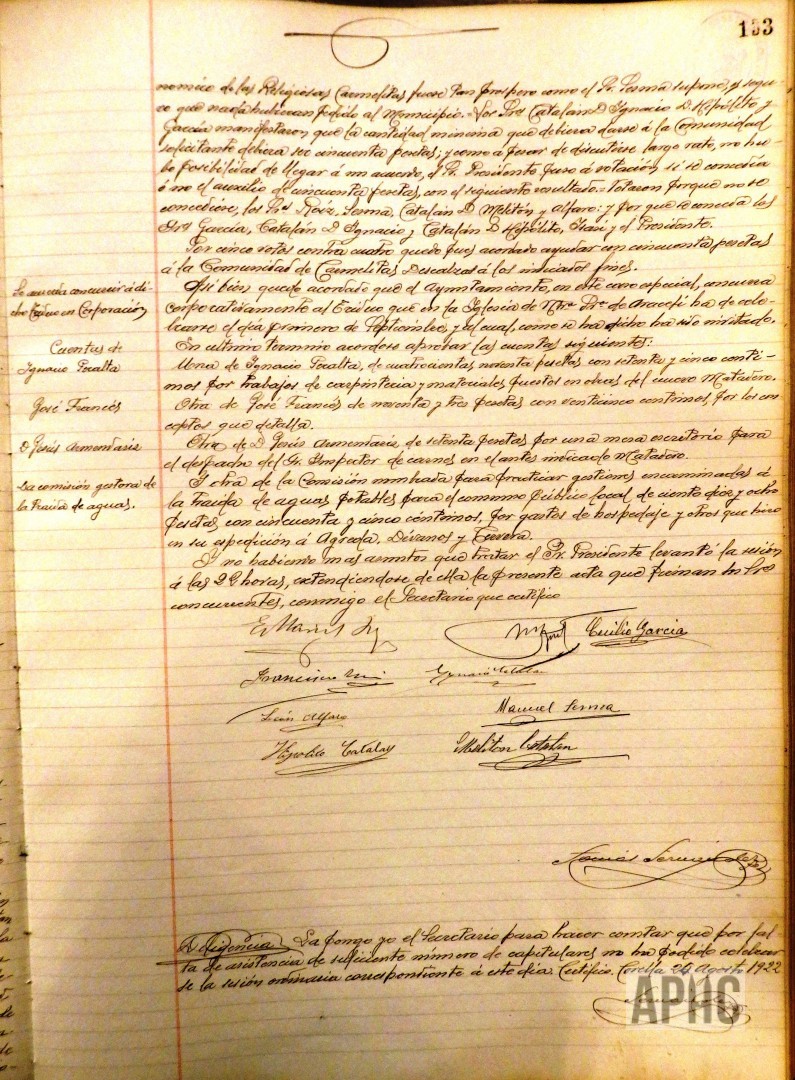 153
nomico de las Religiosas Carmelitas fuese tan prospero como el Sr. Serma supone, es segu-
ro que nada hubieran pedido al Municipio. Los Sres Catalán D. Ignacio D. Hipólito y
García manifestaron que la cantidad minima que debiera darse á la Comunidad
solicitante debiera ser cincuenta pesetas; y como á pesar de discutirse largo rato, no hu-
bo posibilidad de llegar á un acuerdo, el Sr. Presidente puso á votación si se concedía
ó no el auxilio de cincuenta pesetas, con el siguiente resultado: votaron porque no se
concediese, los Sres Serma, Catalán D. Melitón y Alfaro: y por que se conceda los
Sres García, Catalán D. Ignacio y Catalán D. Hipólito, y el Presidente.
Por cinco votos contra cuatro quedó pues acordado ayudar con cincuenta pesetas
á la Comunidad de Carmelitas Descalzas á los indicados fines.
Se acuerda concurrir á di-
cho Triduo en Corporación
Asi bien quedó acordado que el Ayuntamiento, en este caso especial, concurra
corporativamente al Triduo que en la Iglesia de Ntra. Sra. de Araceli ha de cele-
brarse el día primero de Septiembre, y al cual, como se ha dicho ha sido invitado.
En ultimo termino acordose aprobar las cuentas siguientes:
Cuentas de
Ignacio Peralta
Una de Ignacio Peralta, de cuatrocientas noventa pesetas con setenta y cinco centi-
mos por trabajos de carpinteria y materiales puestos en obras del nuevo Matadero.
José Francés
Otra de José Francés de noventa y tres pesetas con venticinco centimos, por los con-
ceptos que detalla.
D Jesús Armendariz
Otra de D. Jesús Armendariz de setenta pesetas por una mesa escritorio para
el despacho del Sr. Inspector de carnes en el antes indicado Matadero.
La comisión gestora de
la traida de aguas.
Y otra de la Comisión nombrada para practicar gestiones encaminadas á
la traida de aguas potables para el consumo público local de ciento diez y ocho
pesetas con cincuenta y cinco céntimos, por gastos de hospedaje y otros que hizo
en su espedición á Agreda, Dévanos y Cervera.
Y no habiendo mas asuntos que tratar el Sr. Presidente levantó la sesión
á las 22 horas, extendiendose de ella la presente acta que firman los Sres
concurrentes, conmigo el Secretario que certifico
Cecilio Garcia
Francisco Ignacio Catalan
León Alfaro Manuel Serma
Hipolito Catalan Meliton Catalan
Diligencia. La pongo yo el Secretario para hacer constar que por fal-
ta de asistencia de suficiente número de capitulares no ha podido celebrar-
se la sesión ordinaria correspondiente á este día. Certifico. Corella 24 Agosto 1922
APHC